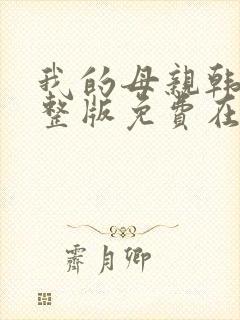 我的母親韩
整版免費在
霽月卿